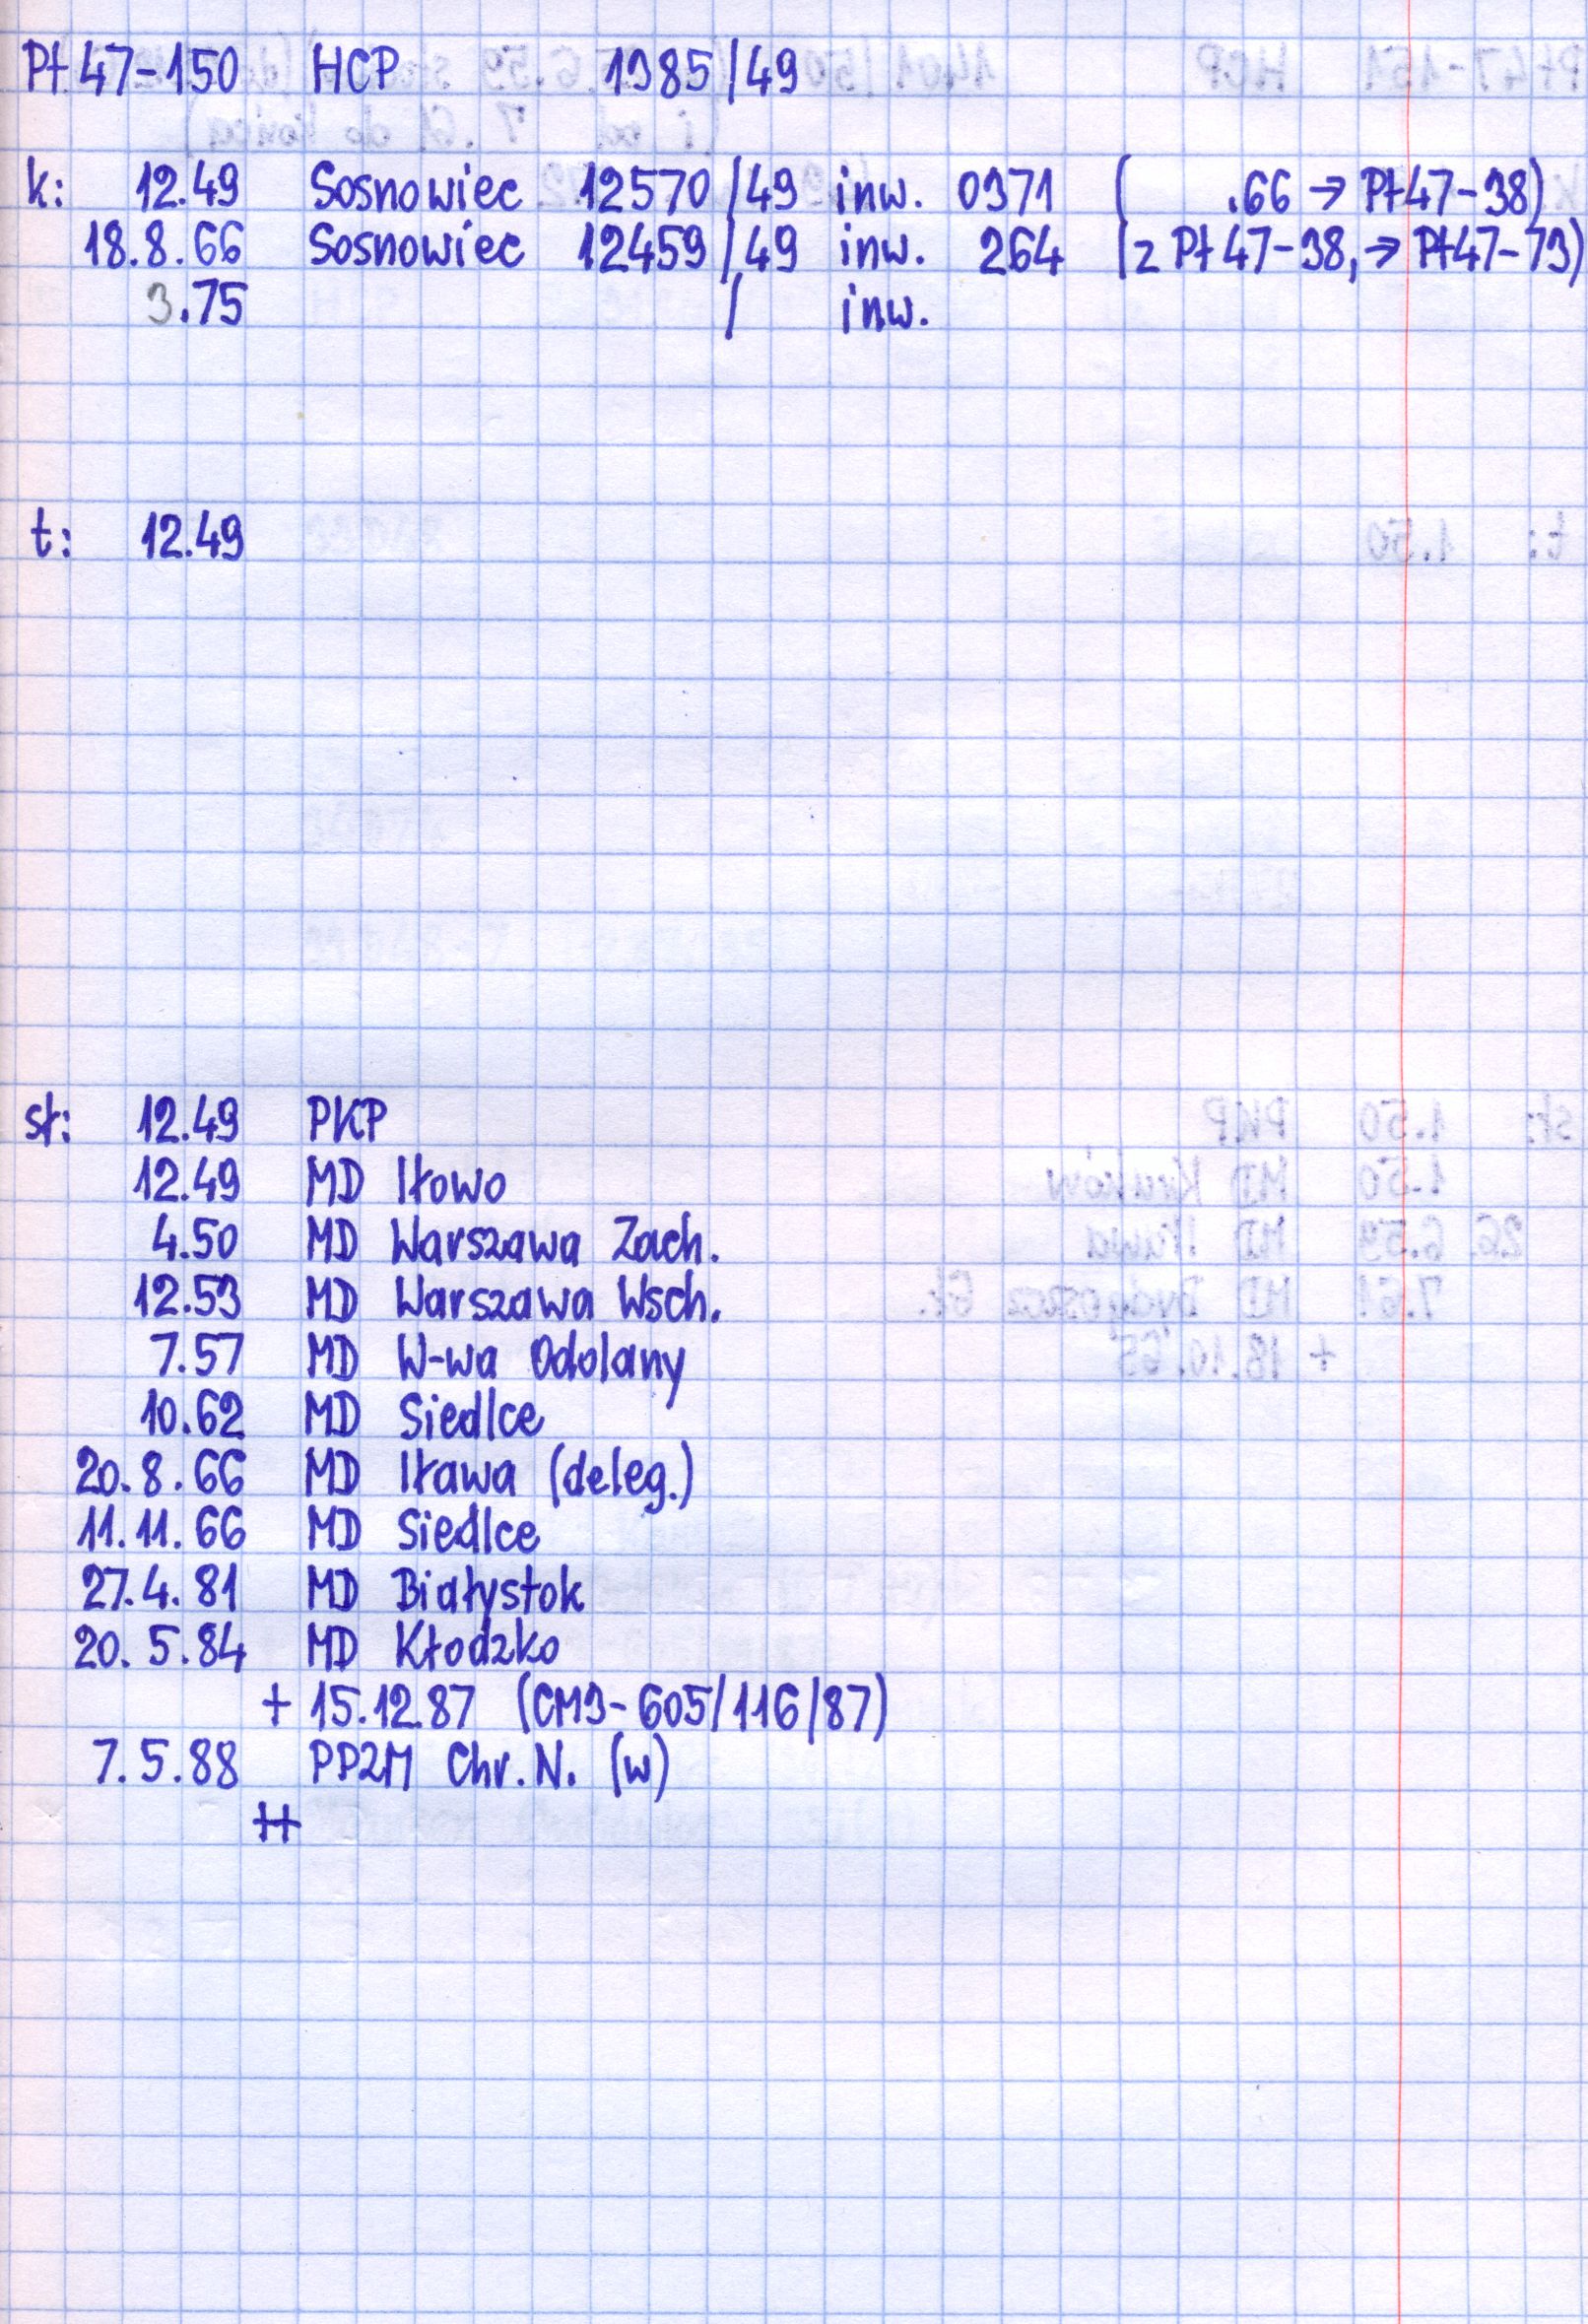 Pt47-150 HCP 1385/49
k: 12.49 Sosnowiec 12570/49 inw. 0371 ( .66 → Pt47-38)
18.8.66 Sosnowiec 12459/49 inw. 264 (z Pt47-38, → Pt47-73)
3.75 / inw.
t: 12.49
sł: 12.49 PKP
12.49 MD Iłowo
4.50 MD Warszawa Zach.
12.53 MD Warszawa Wsch.
7.57 MD W-wa Odolany
10.62 MD Siedlce
20.8.66 MD Iława (deleg.)
11.11.66 MD Siedlce
27.4.81 MD Białystok
20.5.84 MD Kłodzko
+ 15.12.87 (CM3-605/116/87)
7.5.88 PPZM Chr.N. (w)
++